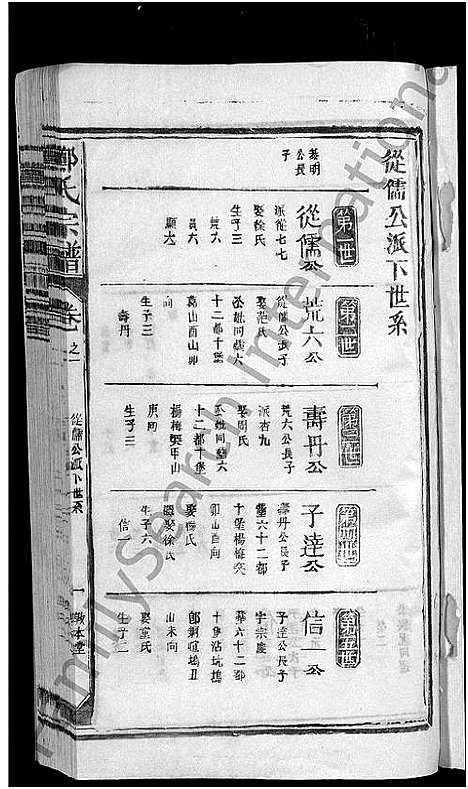 從儒公派下世系
第一世
英明
公長
子
從儒公
派從七七
娶徐氏
生子三
荒六
員六
顯六
第二世
荒六公
從儒公長子
娶范氏
公妣同葬六
十二都十堡
葛山酉山卯
向
生子三
壽丹
第三世
壽丹公
荒六公長子
派杏九
娶周氏
公妣同葬六
十二都十堡
楊梅突甲山
庚向
生子三
第四世
子達公
壽丹公長子
葬六十二都
十堡楊梅突
卯山酉向
娶鄭氏
繼娶徐氏
生子六
信一
第五世
信一公
子達公長子
字宗慶
葬六十二都
十堡沾坑塢
山未向
娶童氏
生子二
鄭氏宗譜
卷之一
從儒公派下世系
一
敦本堂
FamilySearch International